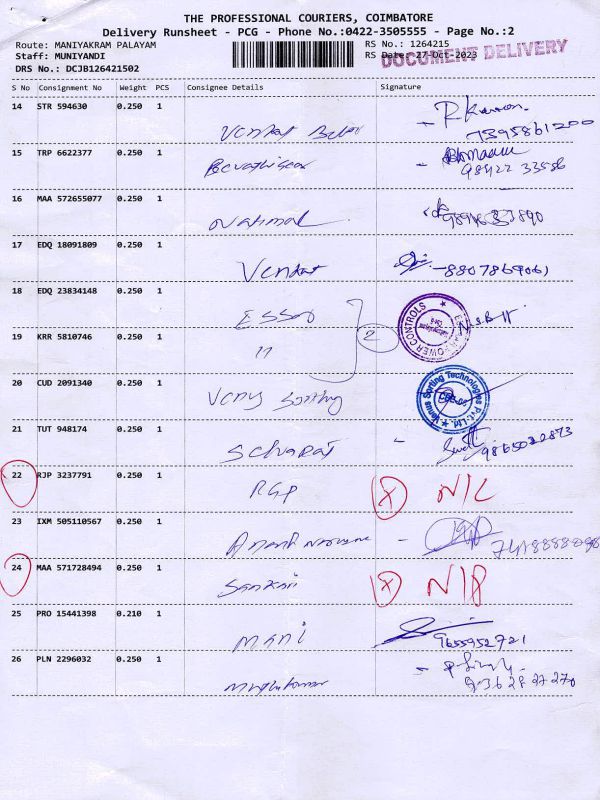 THE PROFESSIONAL COURIERS, COIMBATORE
Delivery Runsheet - PCG - Phone No.:0422-3505555 - Page No.:2
Route: MANIYAKRAM PALAYAM RS No.: 1264215
Staff: MUNIYANDI RS Date:-27-Oct-2023
DOCUMENT DELIVERY
DRS No.: DCJB126421502
S No Consignment No Weight PCS Consignee Details Signature
14 STR 594630 0.250 1
Venkat
15 TRP 6622377 0.250 1
98422 33556
16 MAA 572655077 0.250 1
National
17 EDQ 18091809 0.250 1
Venkat
18 EDQ 23834148 0.250 1
Essar
POWER CONTROLS
2
19 KRR 5810746 0.250 1
11
20 CUD 2091340 0.250 1
Venus Sorting
Venus Sorting Technologies Pvt. Ltd.
21 TUT 948174 0.250 1
22 RJP 3237791 0.250 1
RGP N/C
23 IXM 505110567 0.250 1
Anand
24 MAA 571728494 0.250 1
Sankari
25 PRO 15441398 0.210 1
Mani 9655952721
26 PLN 2296032 0.250 1
Muthukumar